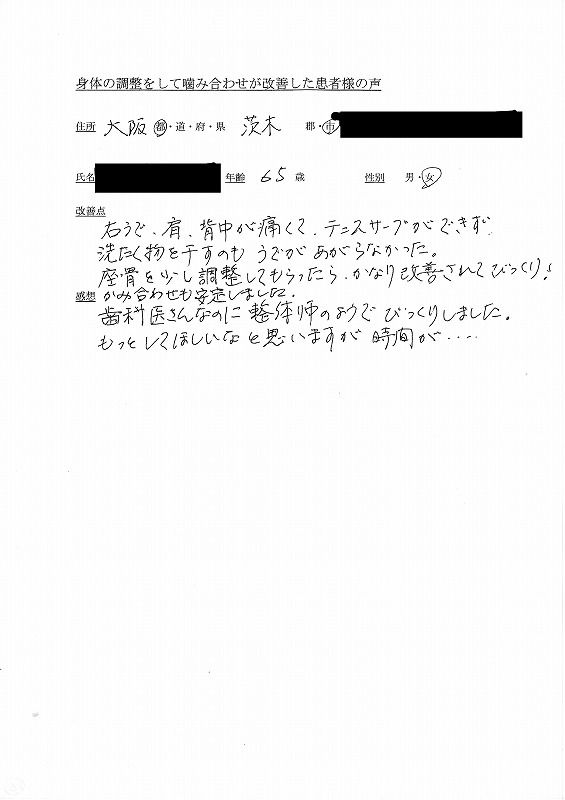 身体の調整をして噛み合わせが改善した患者様の声
住所 大阪 都・道・府・県 茨木 郡・市
氏名 年齢 65 歳 性別 男・女
改善点
右うで、肩、背中が痛くて、テニスサーブができず
洗たく物を干すのも うでがあがらなかった。
座骨を少し調整してもらったら、かなり改善されてびっくり!
かみ合わせも安定しました。
感想
歯科医さんなのに整体師のようでびっくりしました。
もっとしてほしいなと思いますが時間が・・・・